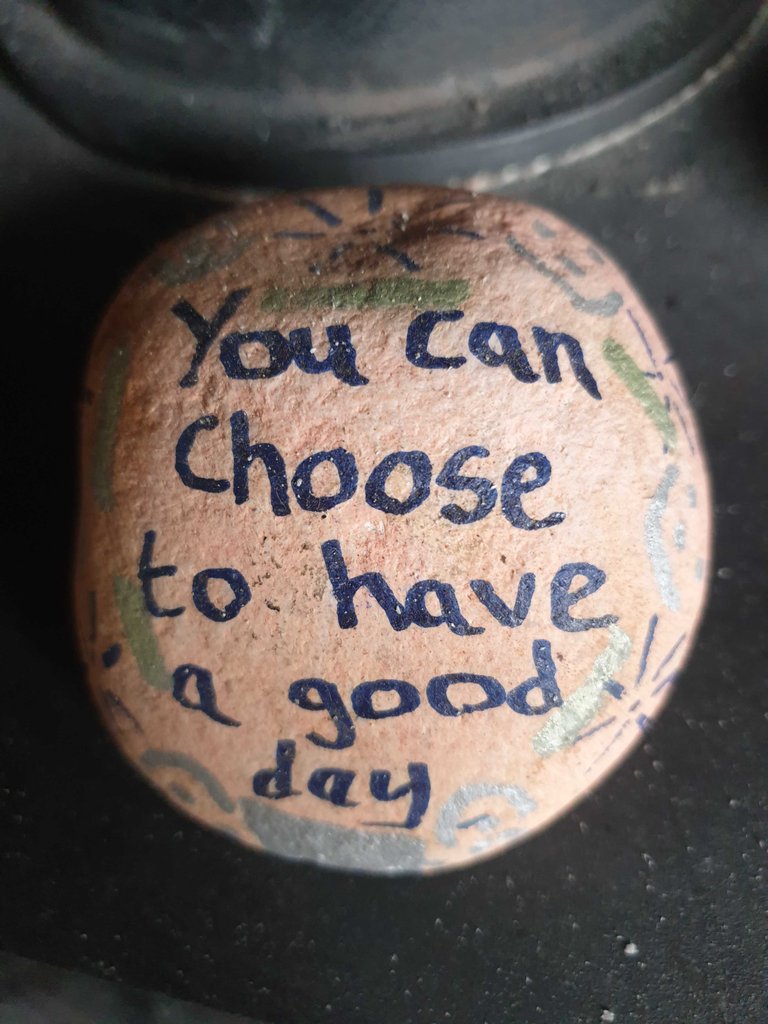 You can
Choose
to have
a good
day